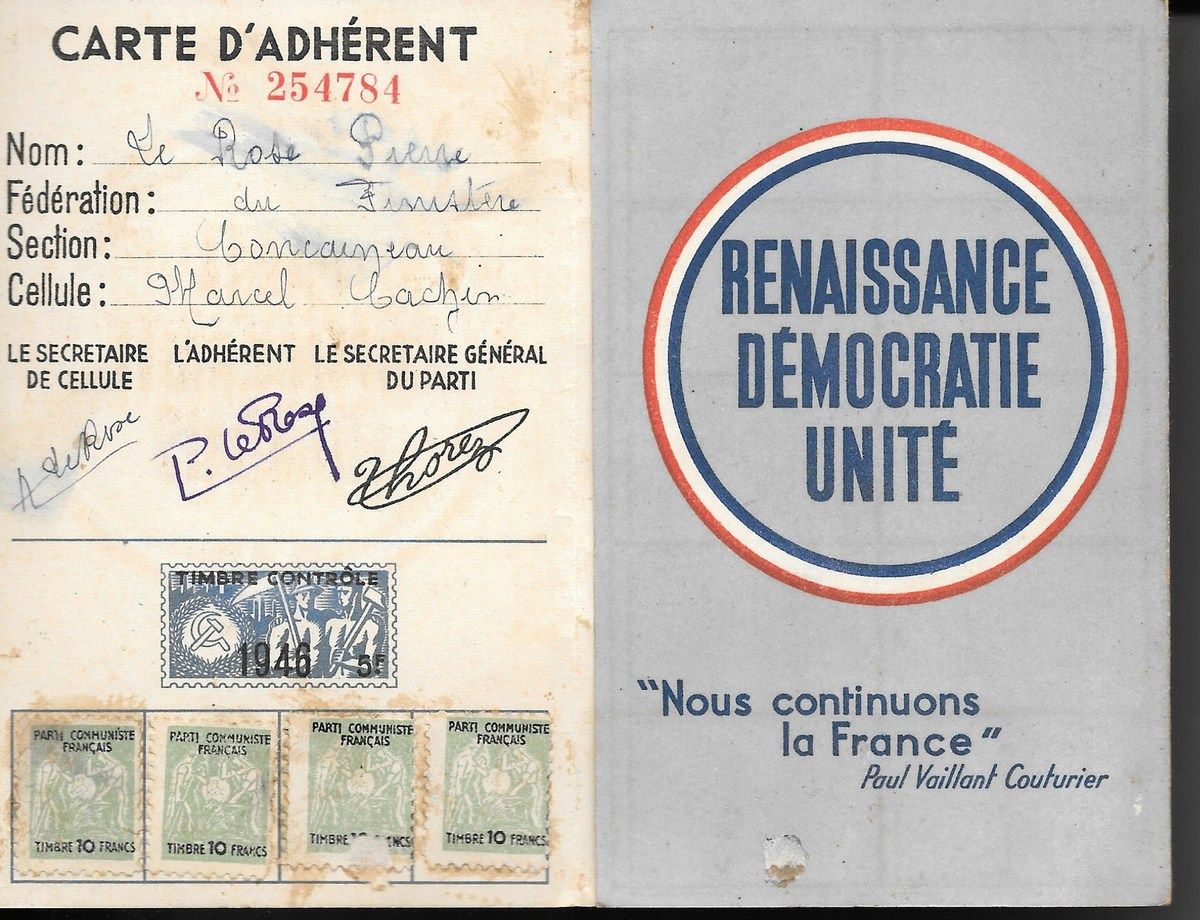 CARTE D'ADHÉRENT
№ 254784
Nom: Le Rose Pierre
Fédération: du Finistère
Section: Concarneau
Cellule: Marcel Cachin
LE SECRETAIRE DE CELLULE
L'ADHÉRENT
LE SECRETAIRE GÉNÉRAL DU PARTI
A Le Rose
P. Le Rose
Thorez
TIMBRE CONTRÔLE
1946 5F
PARTI COMMUNISTE
FRANÇAIS
TIMBRE 10 FRANCS
PARTI COMMUNISTE
FRANÇAIS
TIMBRE 10 FRANCS
PARTI COMMUNISTE
FRANÇAIS
TIMBRE
PARTI COMMUNISTE
FRANÇAIS
TIMBRE 10 FRANCS
RENAISSANCE
DÉMOCRATIE
UNITÉ
"Nous continuons
la France"
Paul Vaillant Couturier